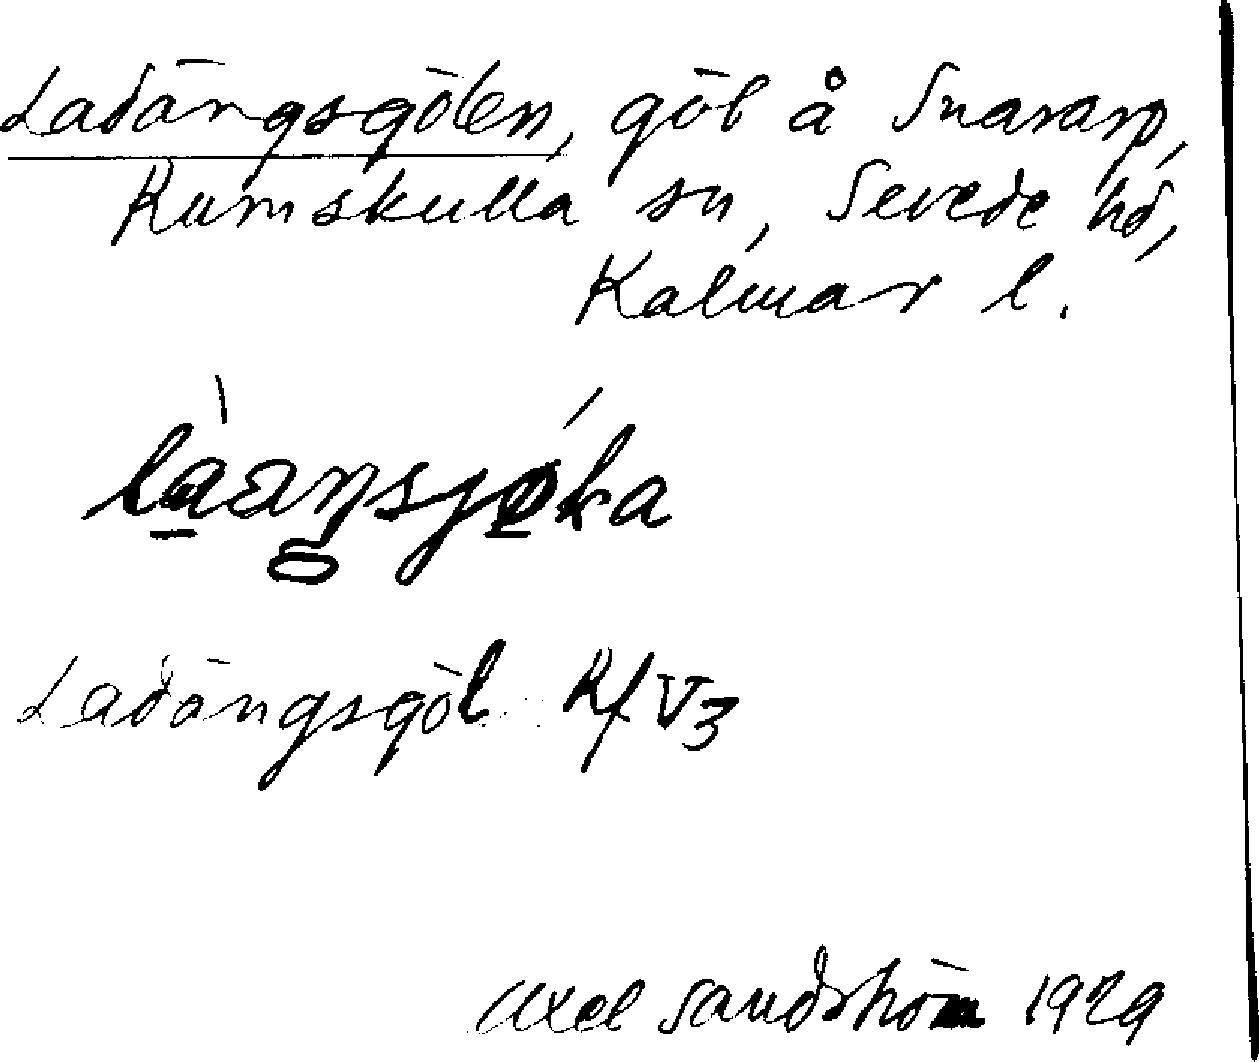 Ladängsgölen, göl å Snararp,
Rumskulla sn, Sevede hd,
Kalmar l.
Ladängsgöl Rf V3
Axel Sandström 1929